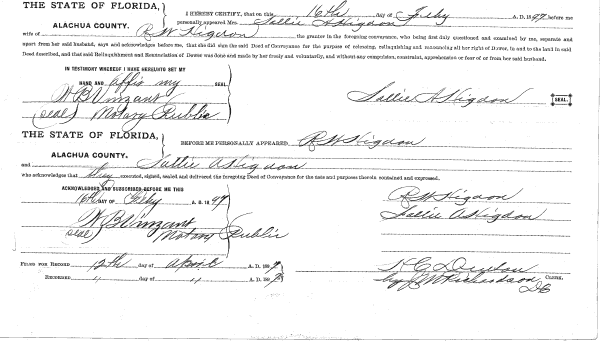 THE STATE OF FLORIDA,
ALACHUA COUNTY.
I HEREBY CERTIFY, that on this 16th day of Feby A. D. 1897, before me
personally appeared Mrs. Sallie A Higdon
wife of R W Higdon the grantor in the foregoing conveyance, who being first duly questioned and examined by me, separate and
apart from her said husband, says and acknowledges before me, that she did sign the said Deed of Conveyance for the purpose of releasing, relinquishing and renouncing all her right of Dower, in and to the land in said
Deed described, and that said Relinquishment and Renunciation of Dower was done and made by her freely and voluntarily, and without any compulsion, constraint, apprehension or fear of or from her said husband.
IN TESTIMONY WHEREOF I HAVE HEREUNTO SET MY
HAND AND affix my SEAL
W B Vinzant
(seal) Notary Public
Sallie A Higdon SEAL.
THE STATE OF FLORIDA,
ALACHUA COUNTY.
BEFORE ME PERSONALLY APPEARED R W Higdon
and Sallie A Higdon
who acknowledges that they executed, signed, sealed and delivered the foregoing Deed of Conveyance for the uses and purposes therein contained and expressed.
ACKNOWLEDGED AND SUBSCRIBED BEFORE ME THIS
16th DAY OF Feby A. D. 1897
W B Vinzant
(seal) Notary Public
R W Higdon
Sallie A Higdon
FILED FOR RECORD 12th day of April A. D. 1897
RECORDED " day of " A. D. 1897
H C Denton CLERK.
by J M Richardson
DC